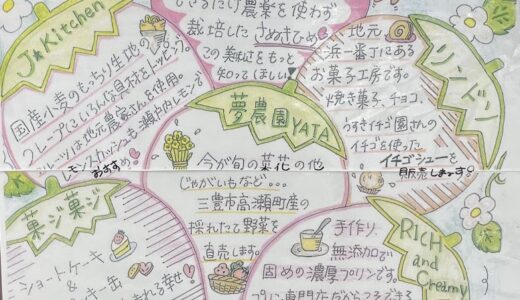 J★Kitchen
国産小麦のもっちり生地の
クレープにいろんな具材をトッピング。
フルーツは地元農家さんを使用。
レモンスカッシュも瀬戸内レモンで
おすすめ
できるだけ農薬を使わず
栽培したさぬきひめ
この美味をもっと
知ってほしい!
リンドン
地元
浜一番丁にある
お菓子工房です。
焼き菓子、チョコ、
うさきイチゴ園さんの
イチゴを使った
イチゴシューを
販売します♪
夢農園YATA
今が旬の菜花の他
じゃがいもなど...
三豊市高瀬町産の
採れたて野菜を
直売します。
菓ジ菓ジ
ショートケーキ
&
キー缶
れる幸せ!
RICH
and
Creamy
手作り、
無添加で
固めの濃厚プリンです。
プリン専門店だからできる